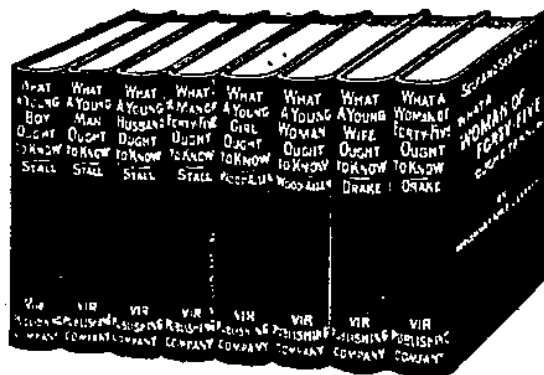 WHAT
A YOUNG
BOY
OUGHT
TO KNOW
STALL
VIR
PUBLISHING
COMPANY
WHAT
A YOUNG
MAN
OUGHT
TO KNOW
STALL
VIR
PUBLISHING
COMPANY
WHAT
A YOUNG
HUSBAND
OUGHT
TO KNOW
STALL
VIR
PUBLISHING
COMPANY
WHAT
A MAN OF
FORTY-FIVE
OUGHT
TO KNOW
STALL
VIR
PUBLISHING
COMPANY
WHAT
A YOUNG
GIRL
OUGHT
TO KNOW
WOOD-ALLEN
VIR
PUBLISHING
COMPANY
WHAT
A YOUNG
WOMAN
OUGHT
TO KNOW
WOOD-ALLEN
VIR
PUBLISHING
COMPANY
WHAT
A YOUNG
WIFE
OUGHT
TO KNOW
DRAKE
VIR
PUBLISHING
COMPANY
WHAT A
WOMAN OF
FORTY-FIVE
OUGHT
TO KNOW
DRAKE
VIR
PUBLISHING
COMPANY
WHAT A
WOMAN OF
FORTY-FIVE
BY